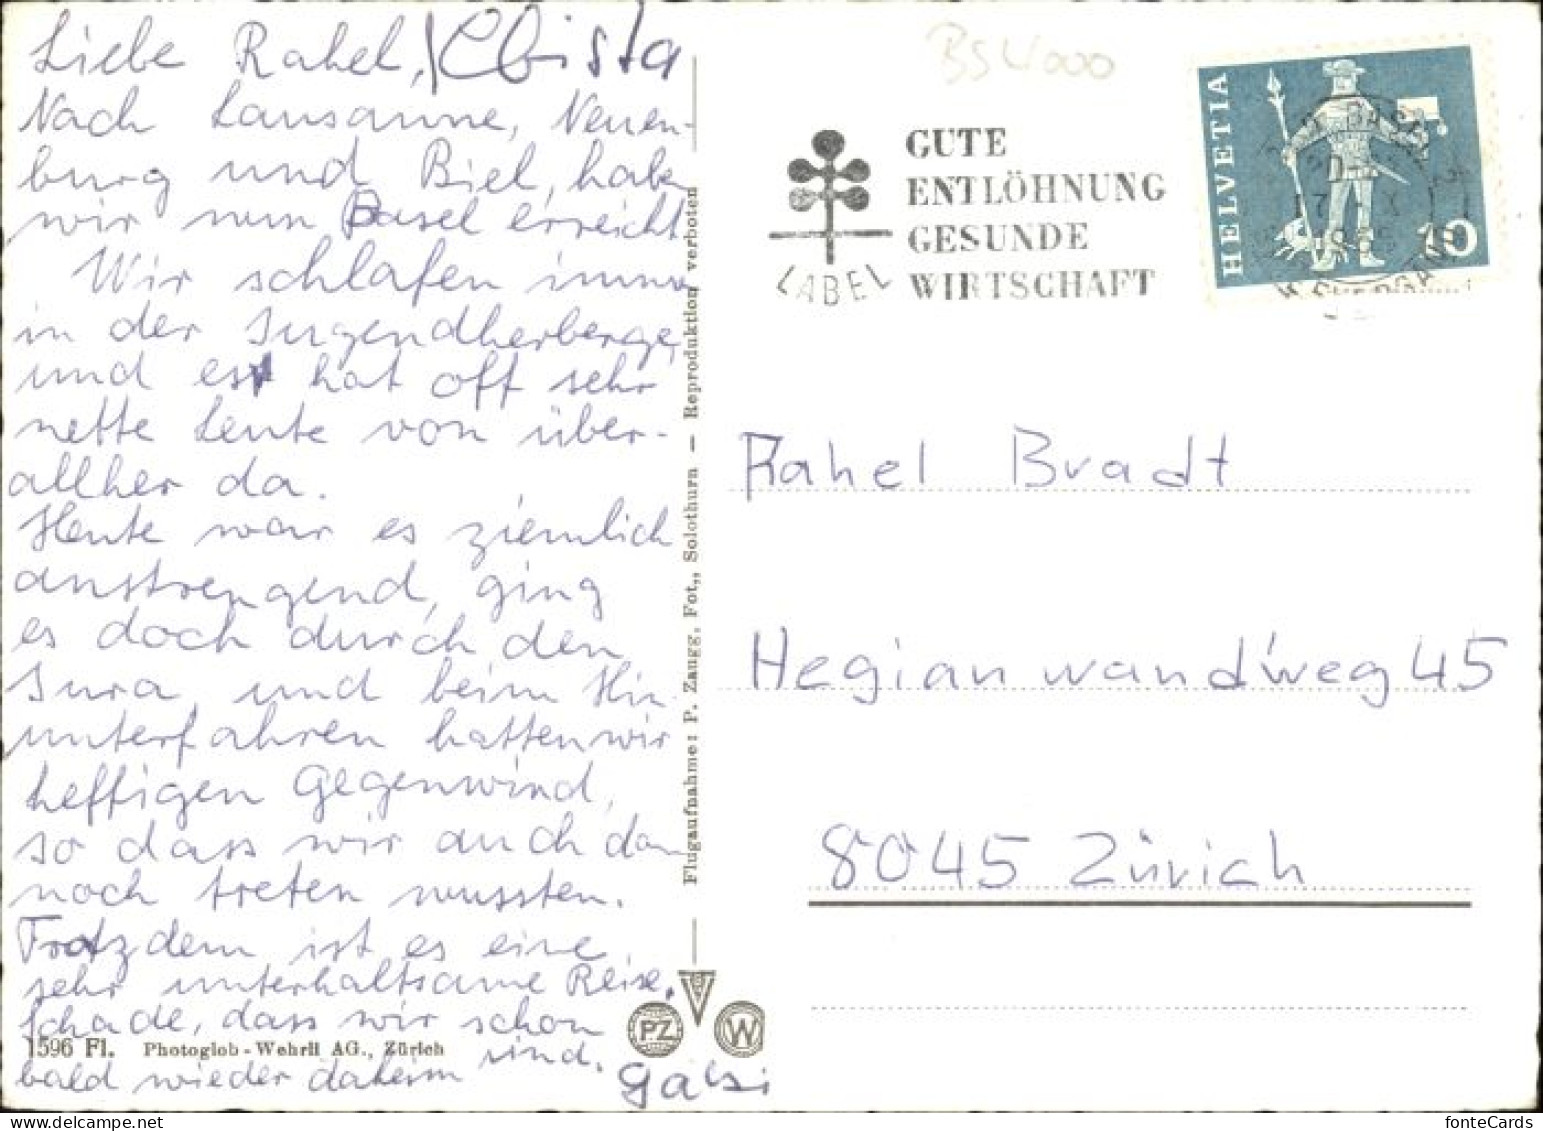 Liebe Rahel,
Nach Lausanne, Neuen-
burg und Biel, haben
wir nun Basel erreicht.
Wir schlafen immer
in der Jugendherberge,
und es hat oft sehr
nette Leute von über-
allher da.
Heute war es ziemlich
anstrengend, ging
es doch durch den
Jura, und beim Hin-
unterfahren hatten wir
heftigen Gegenwind,
so dass wir auch dann
noch treten mussten.
Trotzdem ist es eine
sehr unterhaltsame Reise.
Schade, dass wir schon
bald wieder daheim sind.
Gabi
1596 Fl. Photoglob-Wehrli AG., Zürich
Flugaufnahme: P. Zaugg, Fot., Solothurn — Reproduktion verboten
PZ
W
BS 4000
LABEL
GUTE
ENTLÖHNUNG
GESUNDE
WIRTSCHAFT
HELVETIA
10
BASEL
Rahel Bradt
Hegianwandweg 45
8045 Zürich
fonteCards